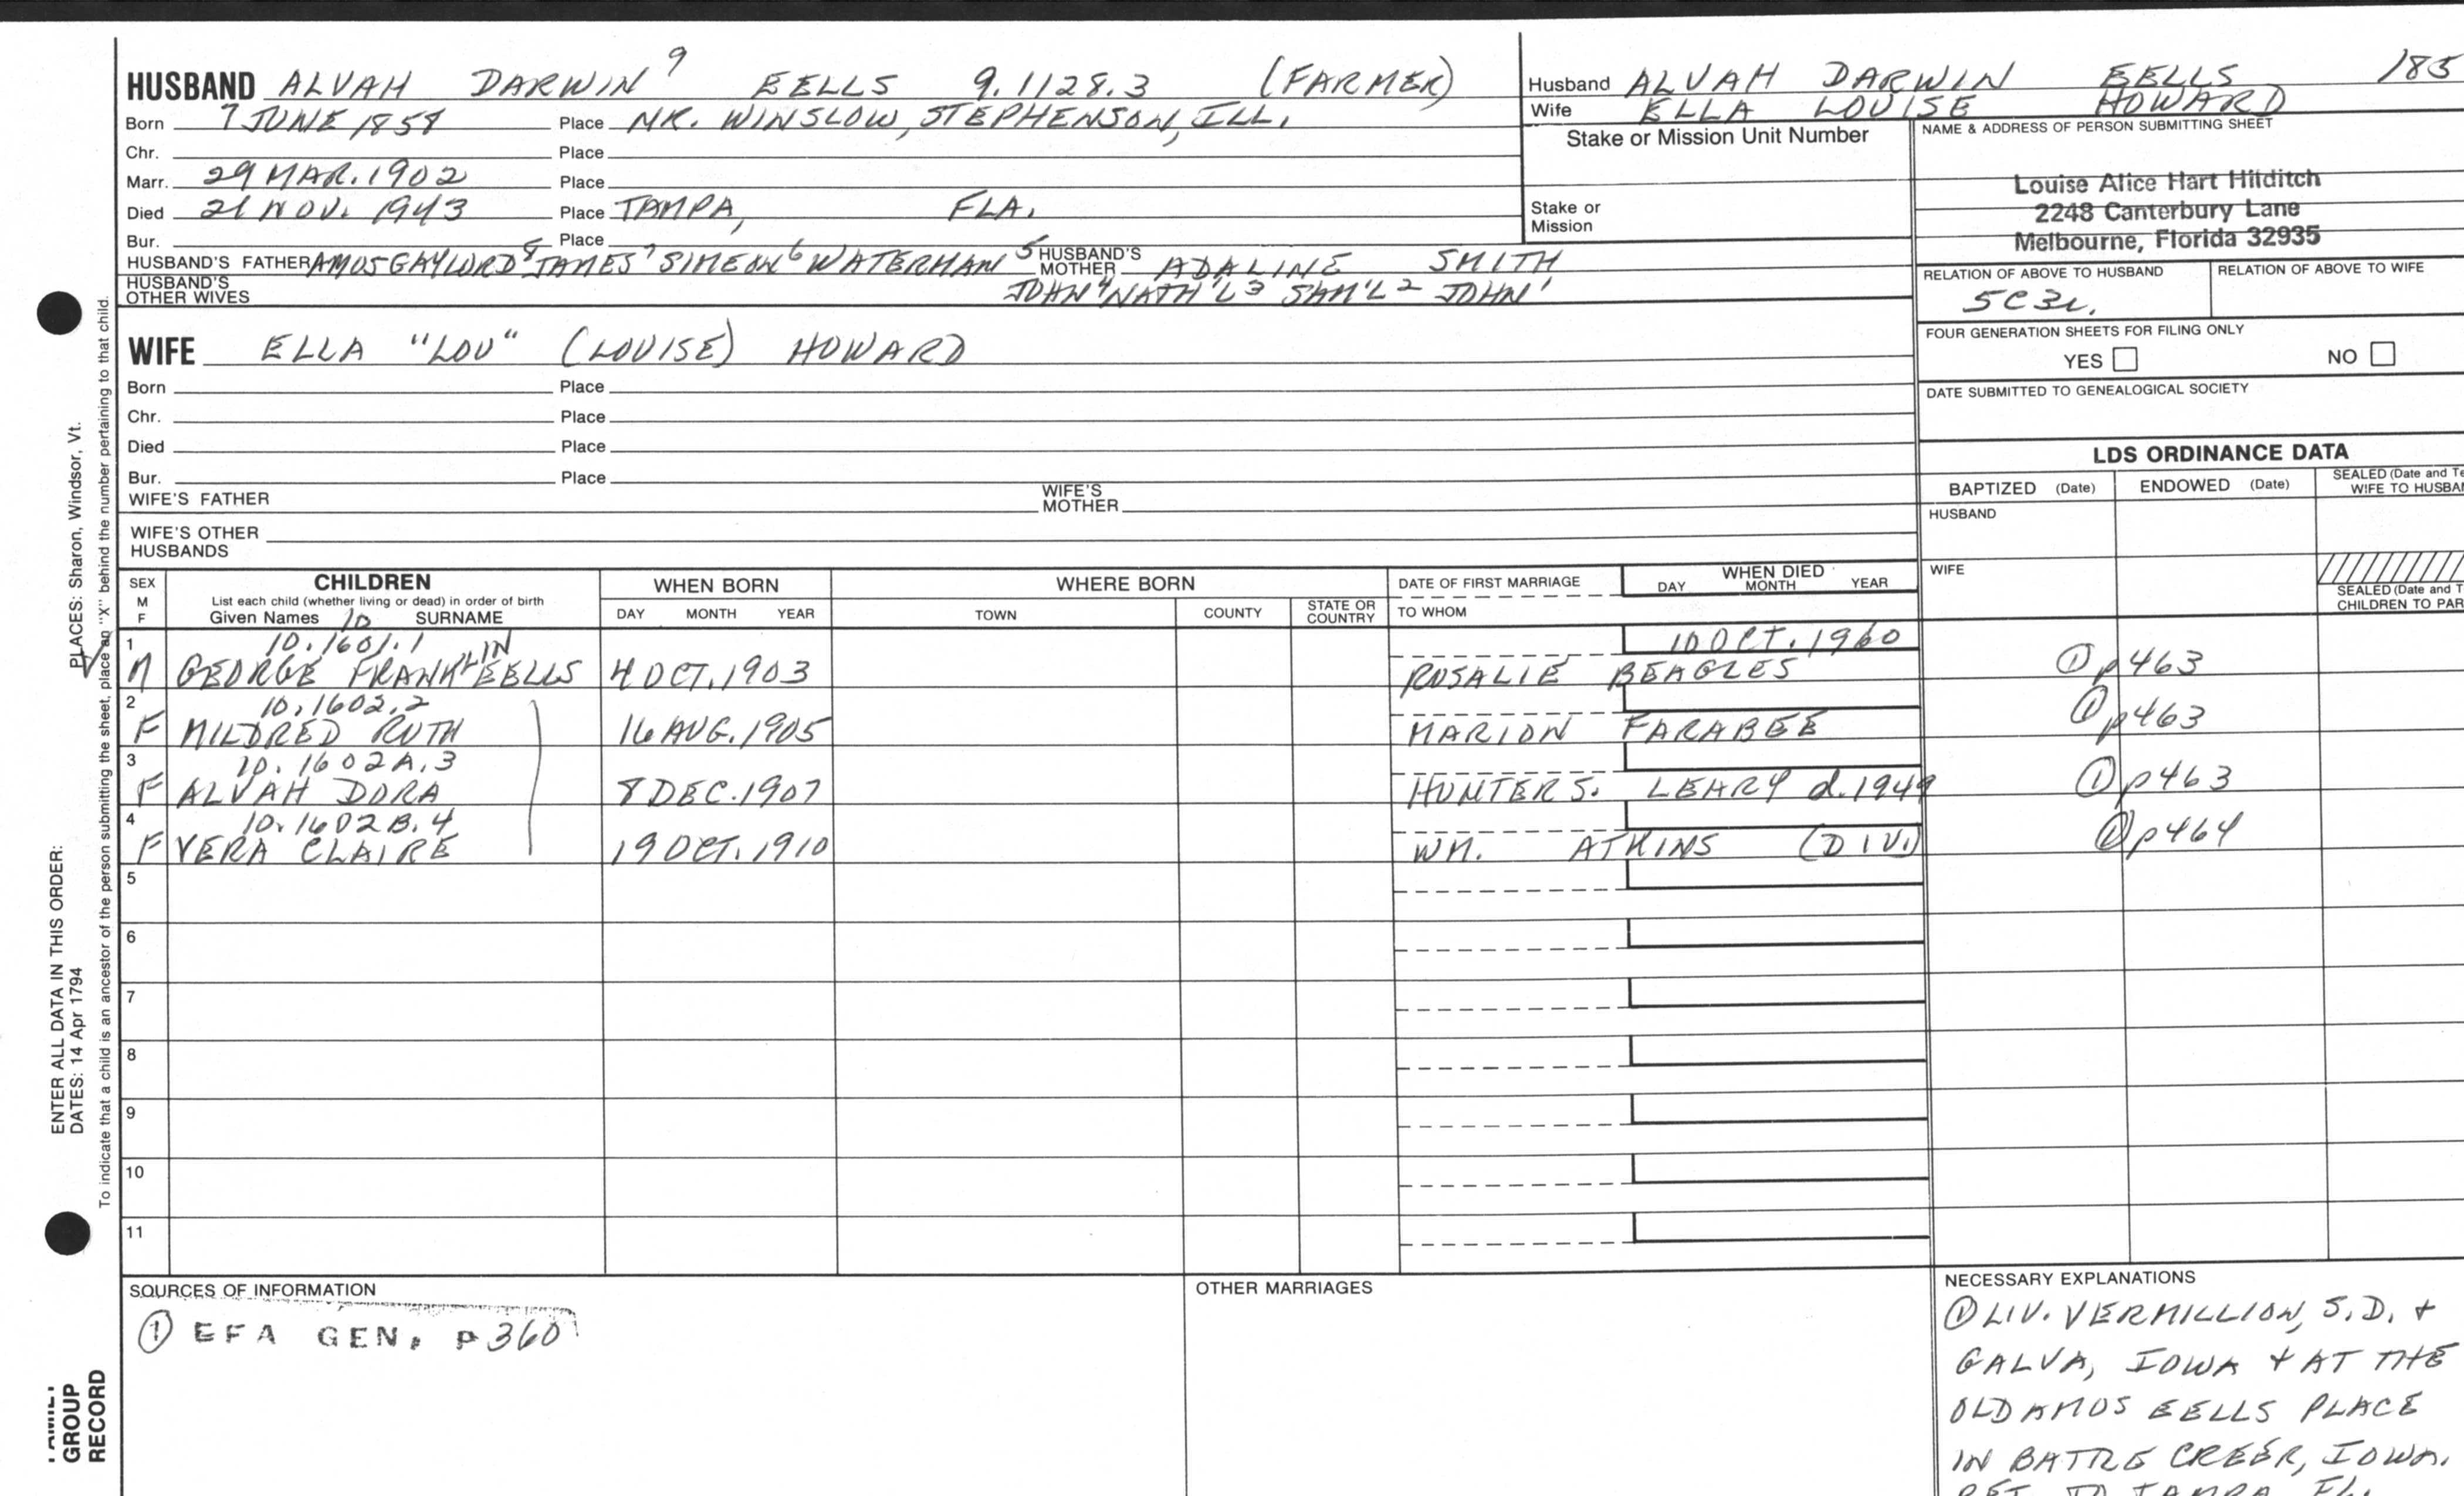 HUSBAND ALVAH DARWIN 9 EELLS 9.1128.3 (FARMER)
Born 7 JUNE 1858 Place NR. WINSLOW, STEPHENSON, ILL.
Chr. Place
Marr. 29 MAR. 1902 Place
Died 21 NOV. 1943 Place TAMPA, FLA.
Bur. Place
HUSBAND'S FATHER AMOS GAYLORD 8 JAMES 7 SIMEON 6 WATERMAN 5 HUSBAND'S MOTHER ADALINE SMITH
HUSBAND'S OTHER WIVES JOHN 4 NATH'L 3 SAM'L 2 JOHN 1
WIFE ELLA "LOU" (LOUISE) HOWARD
Born Place
Chr. Place
Died Place
Bur. Place
WIFE'S FATHER WIFE'S MOTHER
WIFE'S OTHER HUSBANDS
Husband ALVAH DARWIN EELLS 185
Wife ELLA LOUISE HOWARD
Stake or Mission Unit Number
Stake or Mission
NAME & ADDRESS OF PERSON SUBMITTING SHEET
Louise Alice Hart Hilditch
2248 Canterbury Lane
Melbourne, Florida 32935
RELATION OF ABOVE TO HUSBAND RELATION OF ABOVE TO WIFE
5C3r.
FOUR GENERATION SHEETS FOR FILING ONLY
YES NO
DATE SUBMITTED TO GENEALOGICAL SOCIETY
LDS ORDINANCE DATA
BAPTIZED (Date) ENDOWED (Date) SEALED (Date and Te
WIFE TO HUSBAN
HUSBAND
WIFE
SEALED (Date and T
CHILDREN TO PAR
SEX M F
CHILDREN
List each child (whether living or dead) in order of birth
Given Names 10 SURNAME
WHEN BORN
DAY MONTH YEAR
WHERE BORN
TOWN COUNTY STATE OR COUNTRY
DATE OF FIRST MARRIAGE
TO WHOM
WHEN DIED
DAY MONTH YEAR
1 10.1601.1 10 OCT. 1960
M GEORGE FRANKLIN EELLS 4 OCT. 1903 ROSALIE BEAGLES ① p463
2 10.1602.2
F MILDRED RUTH 16 AUG. 1905 MARION FARABEE ① p463
3 10.1602A.3
F ALVAH DORA 8 DEC. 1907 HUNTER S. LEARY d. 1949 ① p463
4 10.1602B.4
F VERA CLAIRE 19 OCT. 1910 WM. ATKINS (DIV.) ① p464
5
6
7
8
9
10
11
SOURCES OF INFORMATION
① EFA GEN, P 360
OTHER MARRIAGES
NECESSARY EXPLANATIONS
① LIV. VERMILLION, S.D. +
GALVA, IOWA + AT THE
OLD AMOS EELLS PLACE
IN BATTLE CREEK, IOWA.
RET. TO TAMPA, FL.
PLACES: Sharon, Windsor, Vt.
ENTER ALL DATA IN THIS ORDER:
DATES: 14 Apr 1794
To indicate that a child is an ancestor of the person submitting the sheet, place an "X" behind the number pertaining to that child.
FAMILY
GROUP
RECORD